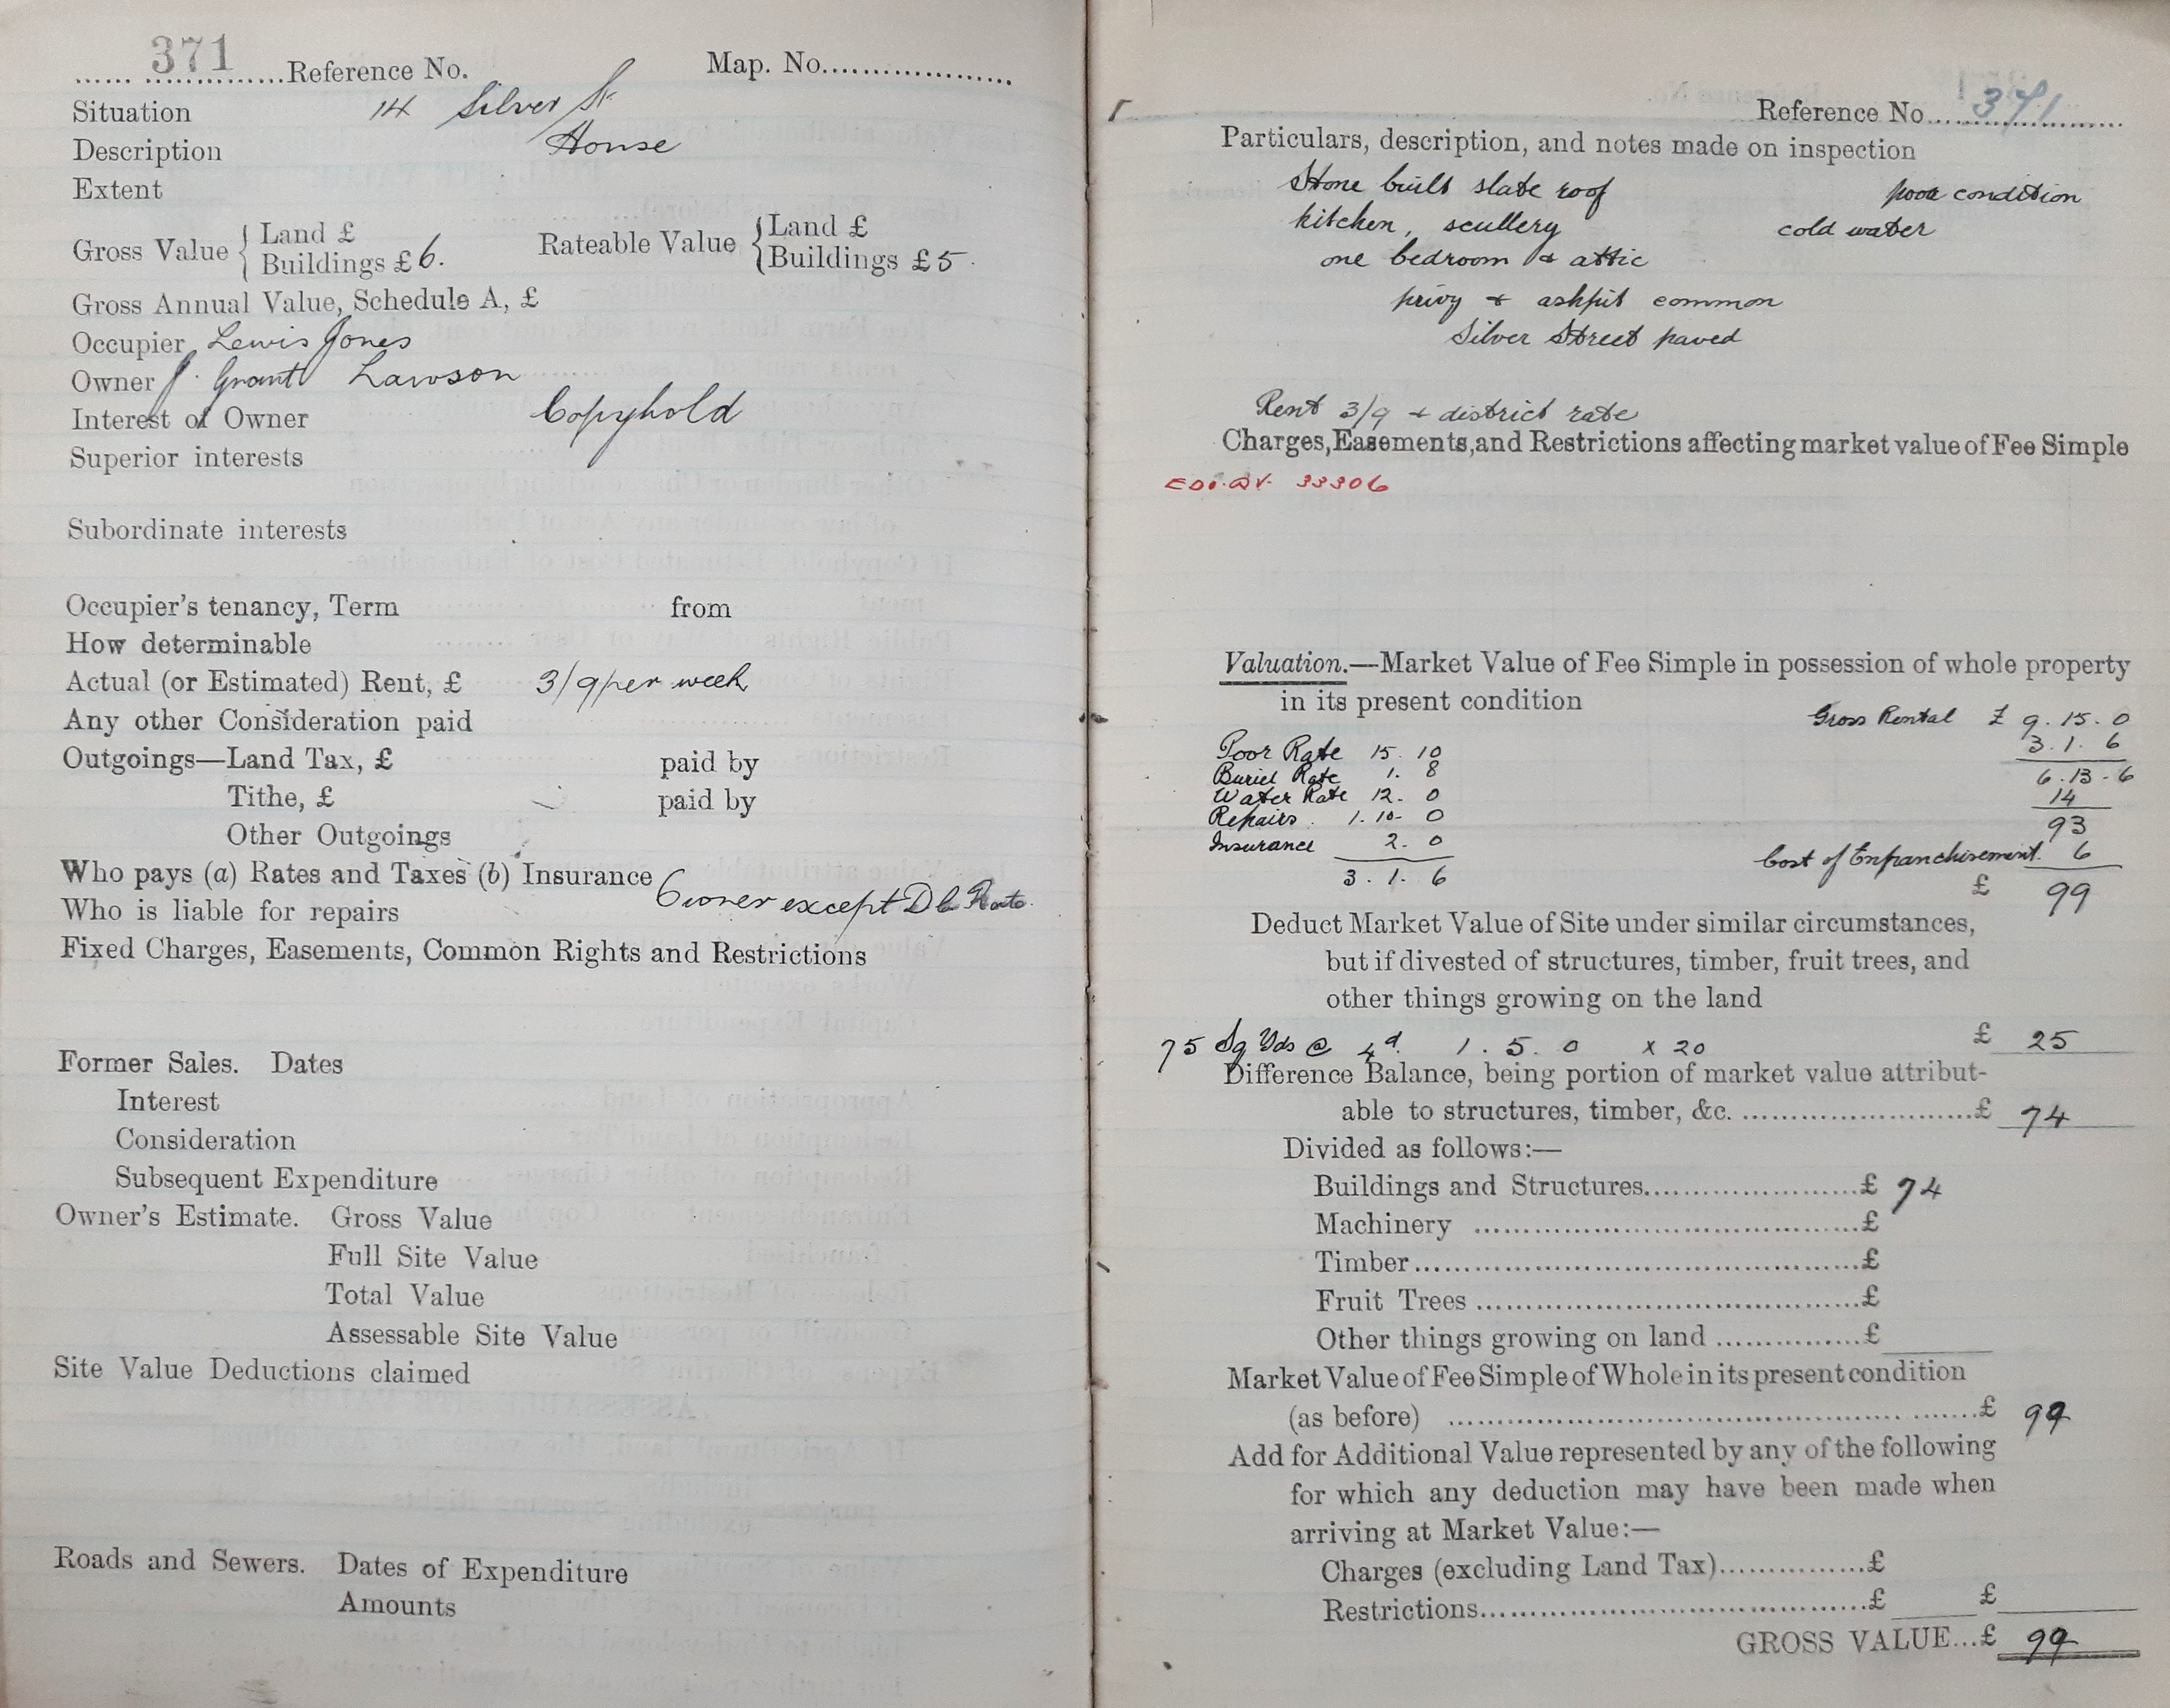 371 Reference No. Map. No.
Situation 14 Silver St
Description House
Extent
Gross Value { Land £
Buildings £ 6. Rateable Value { Land £
Buildings £ 5.
Gross Annual Value, Schedule A, £
Occupier Lewis Jones
Owner J. Grant Lawson
Interest of Owner Copyhold
Superior interests
Subordinate interests
Occupier's tenancy, Term from
How determinable
Actual (or Estimated) Rent, £ 3/9 per week
Any other Consideration paid
Outgoings—Land Tax, £ paid by
Tithe, £ paid by
Other Outgoings
Who pays (a) Rates and Taxes (b) Insurance
Owner except D Rate.
Who is liable for repairs
Fixed Charges, Easements, Common Rights and Restrictions
Former Sales. Dates
Interest
Consideration
Subsequent Expenditure
Owner's Estimate. Gross Value
Full Site Value
Total Value
Assessable Site Value
Site Value Deductions claimed
Roads and Sewers. Dates of Expenditure
Amounts
Reference No. 371
Particulars, description, and notes made on inspection
Stone built slate roof poor condition
kitchen, scullery cold water
one bedroom & attic
privy & ashpit common
Silver Street paved
Rent 3/9 + district rate
Charges, Easements, and Restrictions affecting market value of Fee Simple
33306
Valuation.—Market Value of Fee Simple in possession of whole property
in its present condition
Gross Rental £ 9. 15. 0
Poor Rate 15. 10 3. 1. 6
Buriel Rate 1. 8 6. 13. 6
Water Rate 12. 0 14
Repairs. 1. 10. 0 93
Insurance 2. 0 Cost of Enfranchisement. 6
3. 1. 6 £ 99
Deduct Market Value of Site under similar circumstances,
but if divested of structures, timber, fruit trees, and
other things growing on the land
75 Sq Yds @ 4d. 1. 5. 0 x 20 £ 25
Difference Balance, being portion of market value attribut-
able to structures, timber, &c. £ 74
Divided as follows:—
Buildings and Structures £ 74
Machinery £
Timber £
Fruit Trees £
Other things growing on land £
Market Value of Fee Simple of Whole in its present condition
(as before) £ 99
Add for Additional Value represented by any of the following
for which any deduction may have been made when
arriving at Market Value:—
Charges (excluding Land Tax) £
Restrictions £ £
GROSS VALUE...£ 99